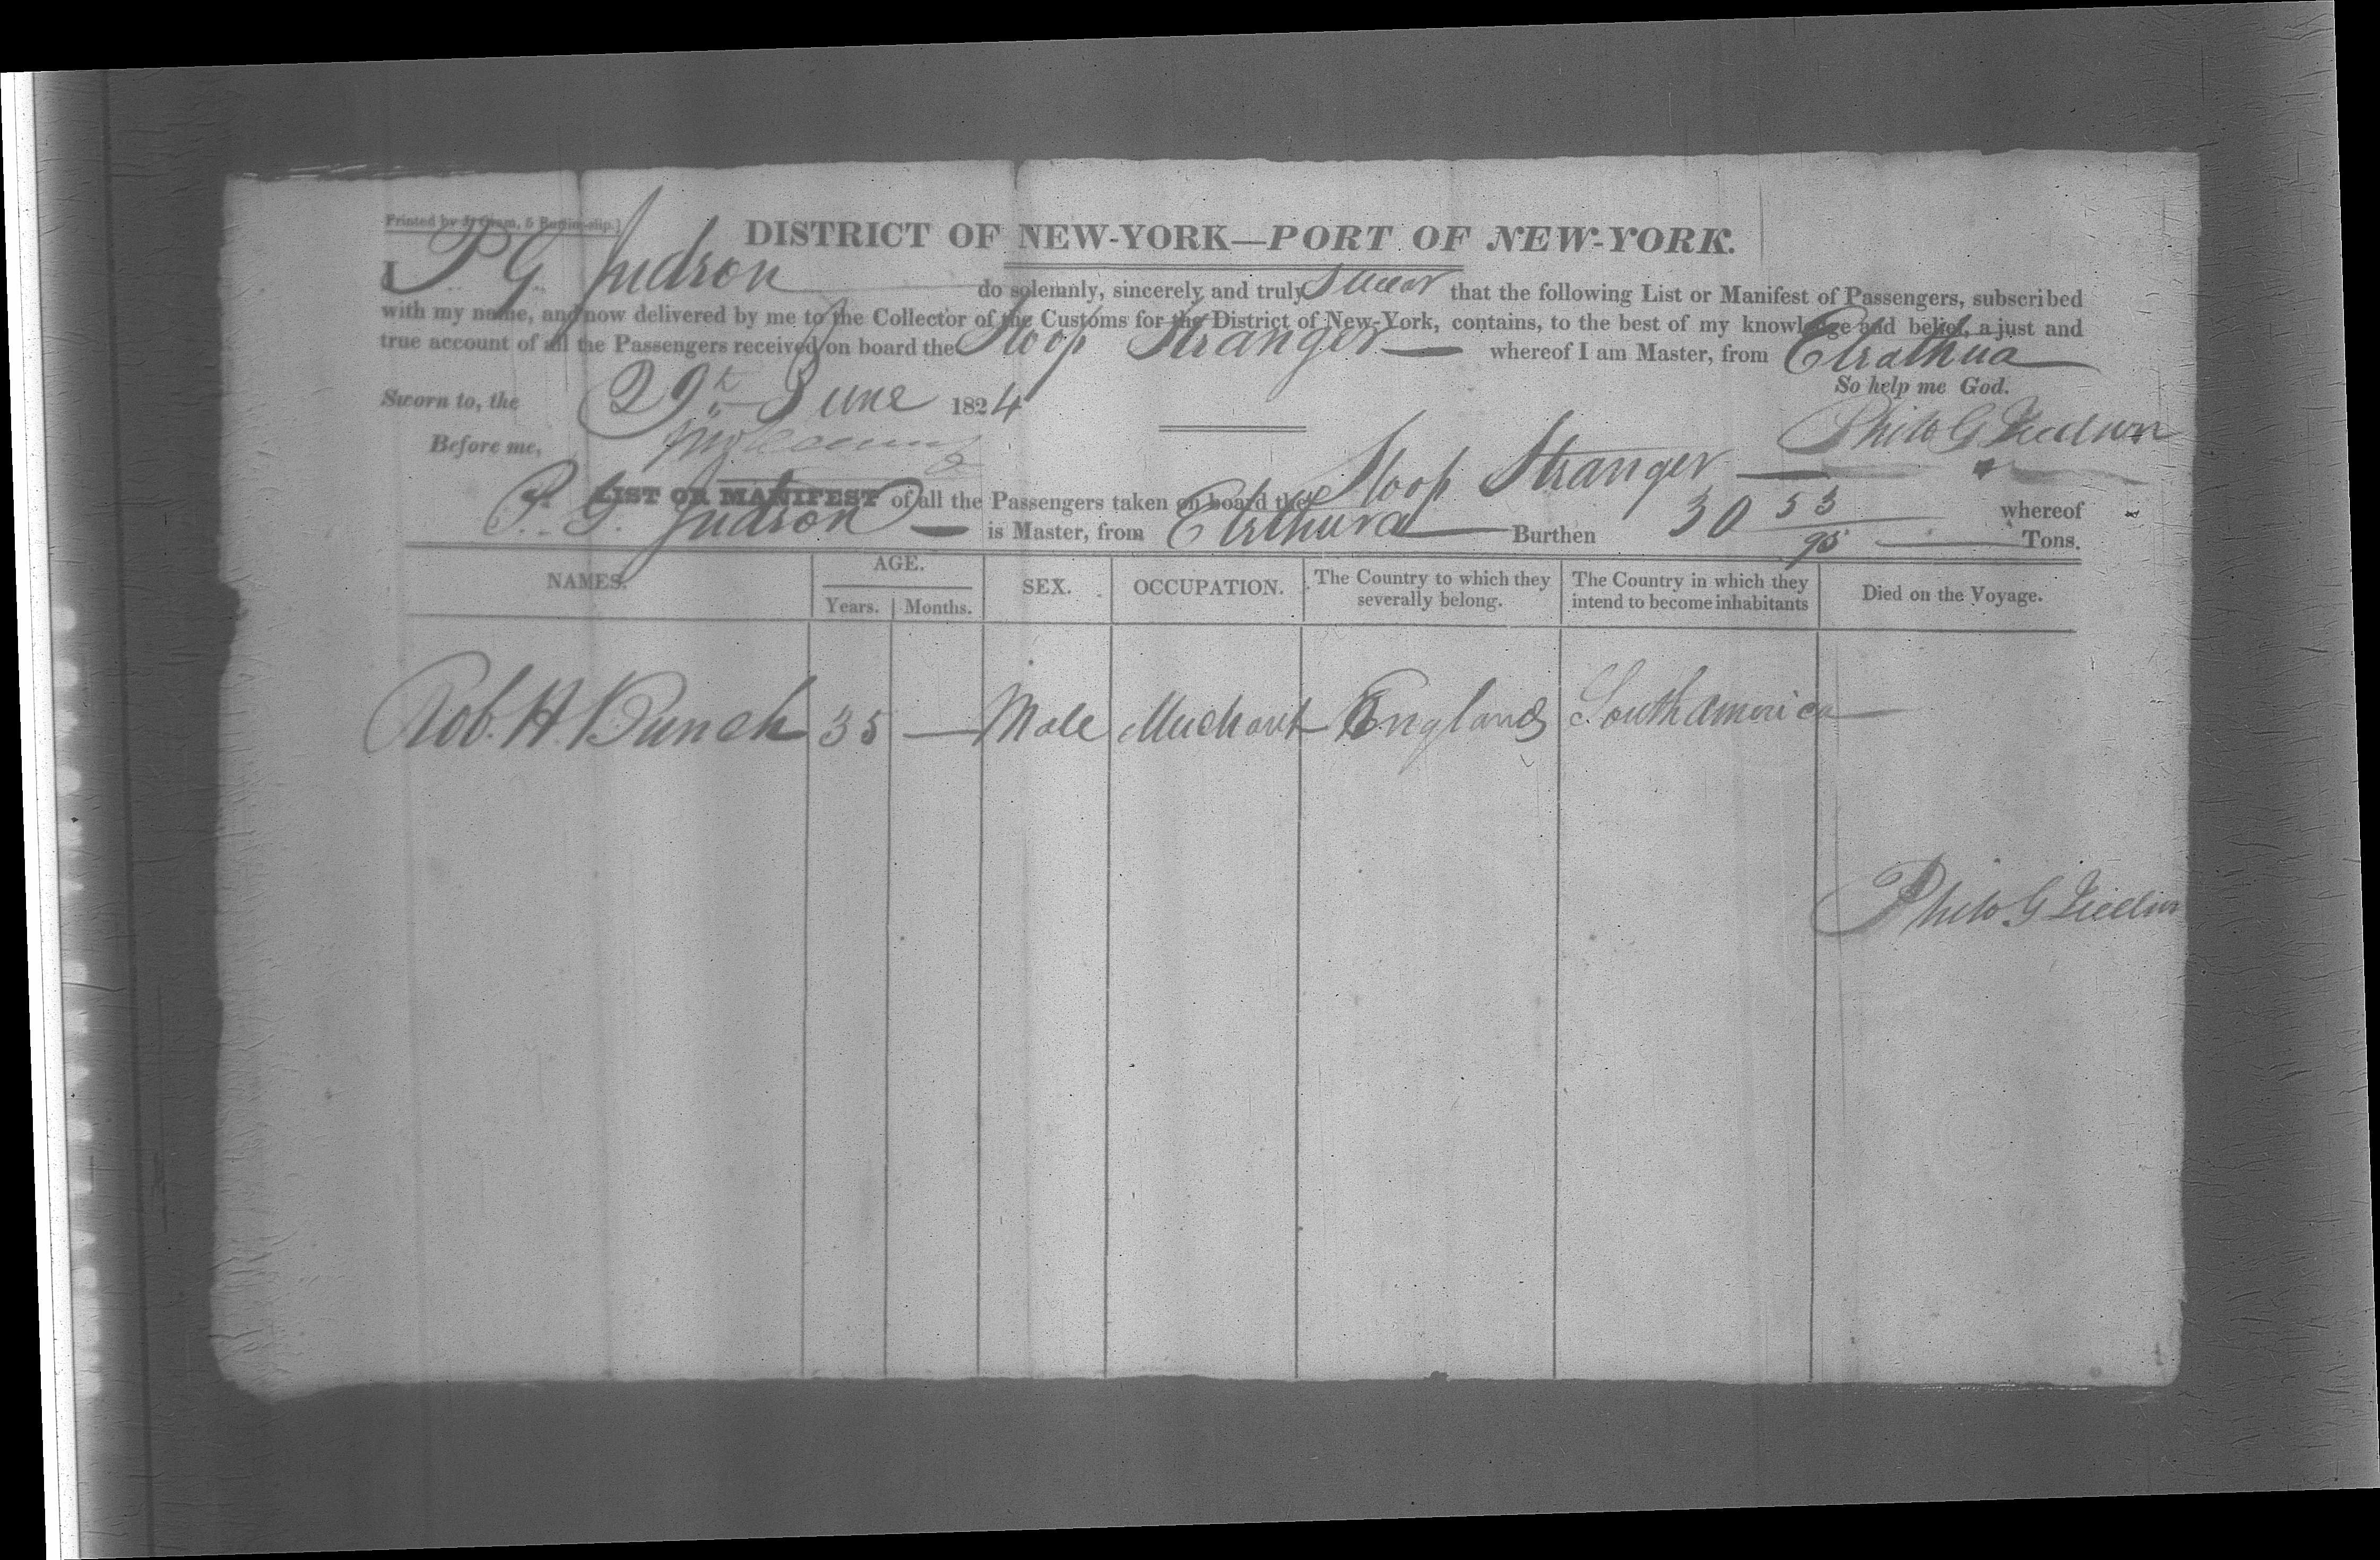 Printed by J. Oram, 5 Burling-slip.]
DISTRICT OF NEW-YORK—PORT OF NEW-YORK.
I P G Judson do solemnly, sincerely and truly Swear that the following List or Manifest of Passengers, subscribed
with my name, and now delivered by me to the Collector of the Customs for the District of New-York, contains, to the best of my knowledge and belief, a just and
true account of all the Passengers received on board the Sloop Stranger whereof I am Master, from Elrathua
So help me God.
Sworn to, the 29th June 1824
Philo G Judson
Before me,
LIST OR MANIFEST of all the Passengers taken on board the Sloop Stranger whereof
P. G. Judson is Master, from Elrthura Burthen 30 53/95 Tons.
NAMES. AGE. SEX. OCCUPATION. The Country to which they severally belong. The Country in which they intend to become inhabitants Died on the Voyage.
Years. Months.
Rob. H. Bunch 35 — Male Merchant England South america —
Philo G Judson